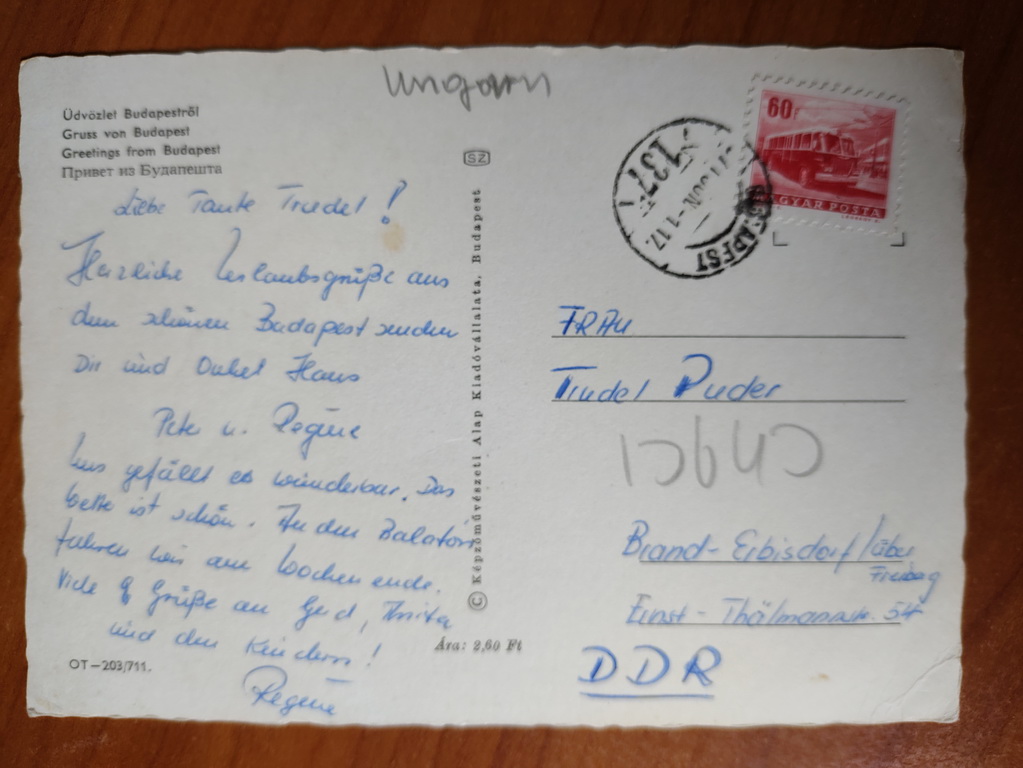 Ungarn
Üdvözlet Budapestről
Gruss von Budapest
Greetings from Budapest
Привет из Будапешта
Liebe Tante Trudel!
Herzliche Urlaubsgrüße aus
dem schönen Budapest senden
Dir und Onkel Hans
Peter u. Regine
Uns gefällt es wunderbar. Das
ist schön. An den Balaton
fahren wir am Wochenende.
Viele Grüße an Gerd, Anita
und den Kindern!
Regine
OT-203/711.
SZ
© Képzőművészeti Alap Kiadóvállalata, Budapest
Ára: 2,60 Ft
60f
MAGYAR POSTA
BUDAPEST
137
FRAU
Trudel Puder
Brand-Erbisdorf/über
Freiberg
Ernst-Thälmannstr. 54
DDR